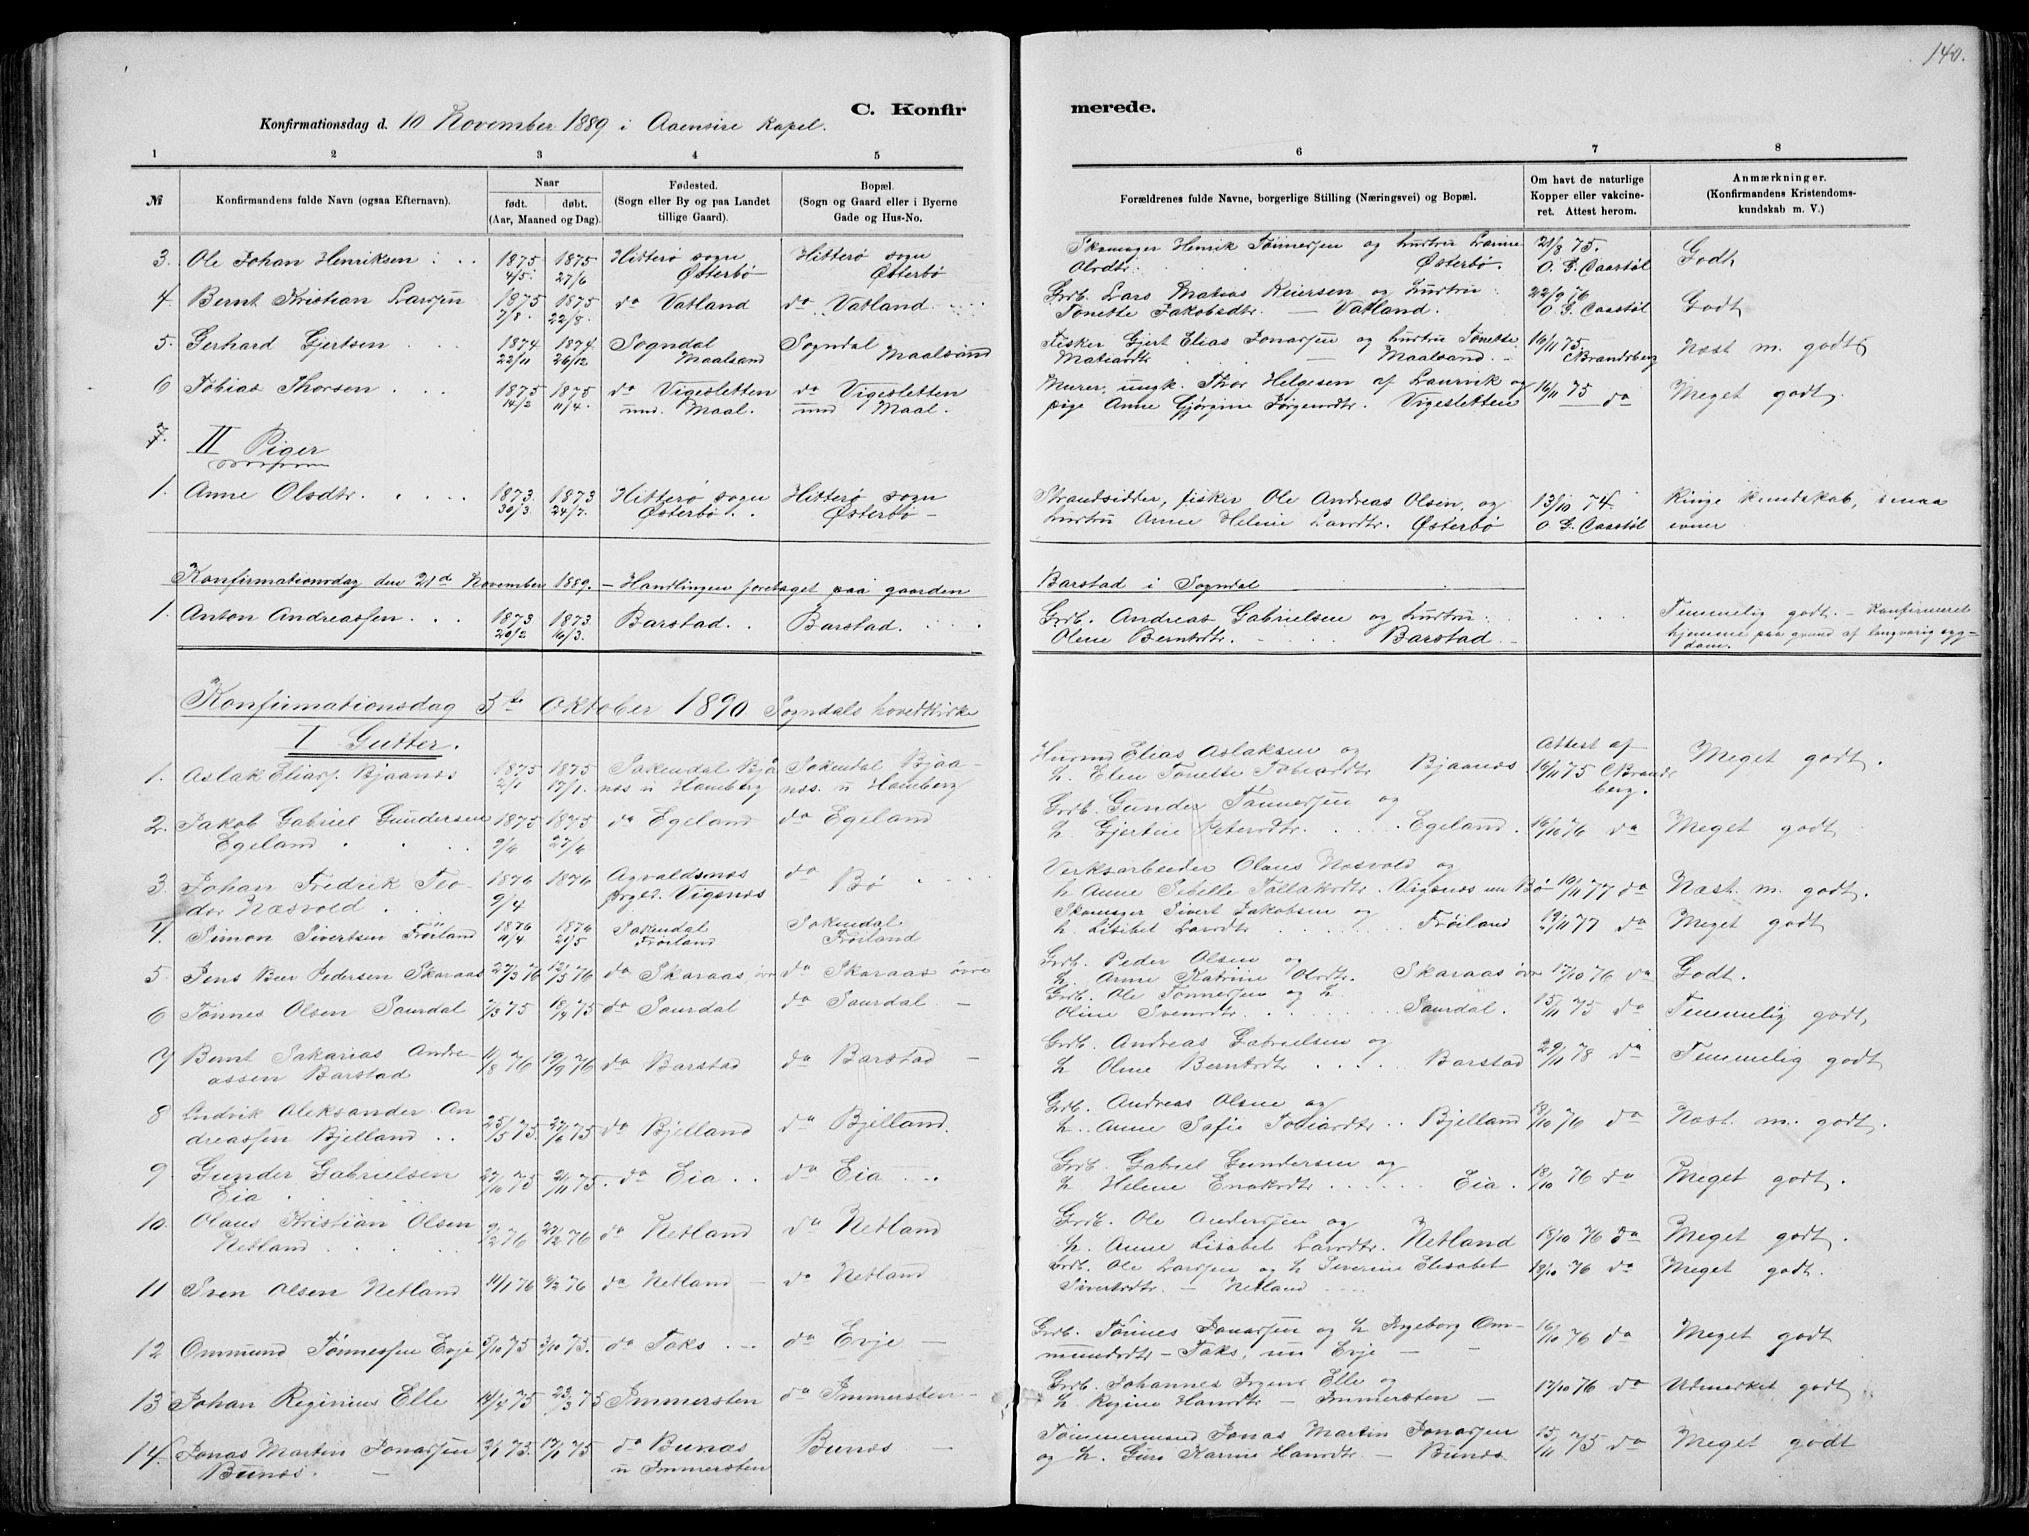 140.
C. Konfirmerede.
Konfirmationsdag d. 10 November 1889 i Aaensire Kapel.
1 2 3 4 5 6 7 8
№
Konfirmandens fulde Navn (ogsaa Efternavn).
Naar
født. døbt.
(Aar, Maaned og Dag).
Fødested.
(Sogn eller By og paa Landet
tillige Gaard).
Bopæl.
(Sogn og Gaard eller i Byerne
Gade og Hus-No.
Forældrenes fulde Navne, borgerlige Stilling (Næringsvei) og Bopæl.
Om havt de naturlige
Kopper eller vakcine-
ret. Attest herom.
Anmærkninger.
(Konfirmandens Kristendoms-
kundskab m. V.)
3. Ole Johan Henriksen 1875 4/5. 1875 27/6 Hitterø sogn Østerbø Hitterø sogn Østerbø Skomager Henrik Tønnessen og hustru Larine Olsdtr. Østerbø. 21/8 75. O. G. Caastøl Godt
4. Bernt Kristian Larsen 1875 7/8. 1875 22/8. do Vatland do Vatland Grdb. Lars Matias Reiersen og hustru Tonette Jakobsdtr. — Vatland. 22/9 76 O. G. Caastøl Godt
5. Gerhard Gjertsen 1874 22/11 1874 26/12. Sogndal Maalsand Sogndal Maalsand Fisker Gjert Elias Jonassen og hustru Tønette Matiasdtr. — Maalsand. 16/11 75. C Brandsberg Næst m. godt
6 Tobias Thorsen 1875 14/2 1875 11/4. do Vigesletten und. Maal. do Vigesletten und Maal. Murer, ungk. Thor Helgesen af Laurvik og pige Anne Gjørgine Jørgensdtr. Vigesletten 16/11 75 do Meget godt.
7. II Piger
1. Anne Olsdtr. 1873. 30/3. 1873 24/7. Hitterø sogn Østerbø. Hitterø sogn Østerbø — Strandsidder, fisker Ole Andreas Olsen, og hustru Anne Helene Larsdtr. Østerbø 13/10 74 O. G. Caastøl Ringe kundskab, smaa evner
Konfirmationsdag den 21de November 1889. — Handlingen foretaget paa gaarden Barstad i Sogndal
1. Anton Andreassen 1873 20/2 1873. 16/3. Barstad. Barstad. Grdb. Andreas Gabrielsen og hustru Oline Berntsdtr. Barstad. Temmelig godt. — Konfirmeret hjemme paa grund af langvarig syg- dom.
Konfirmationsdag 5te Oktober 1890 Sogndals hovedkirke
I Gutter.
1. Aslak Eliass. Bjaanes 1875 2/1 1875 17/1. Sokendal Bjaanes u Hamberg Sokendal Bjaanes. u Hamberg Husmd Elias Aslaksen og h. Elen Tonette Tobiasdtr Bjaanes Attest af 16/11 75 C Brandsberg. Meget godt.
2. Jakob Gabriel Gundersen Egeland 1875 1875 27/6 do Egeland do Egeland Grdb. Gunder Tønnessen og h. Gjertine Petersdtr. Egeland. 16/10 76 do Meget godt
3. Johan Fredrik Teodor Næsvold 1876 9/4 1876 Agvaldsnes Vigsnes do Bø Verksarbeider Olaus Næsvold og h Anne Sibelle Tallaksdtr. Vigsnes nu Bø 10/11 77 do Næst. m. godt.
4. Simon Sivertsen Frøiland 1876 11/4. 1876 21/5 Sokendal Frøiland Sokendal Frøiland Skomager Sivert Jakobsen og h. Lisabet Larsdtr Frøiland 19/11 77 do Meget godt
5. Jens Beer Pedersen Skaraas 27/3 76 12/5 76 do Skaraas øvre do Skaraas øvre Grdb. Peder Olsen og h. Anne Katrine Olsdtr. Skaraas øvre 17/10 76 do Godt.
6 Tønnes Olsen Saurdal 7/3 75 18/4 75 do Saurdal do Saurdal — Grdb. Ole Tønnessen og h Oline Svensdtr. Saurdal. 15/11 75 do Temmelig godt
7 Bernt Sakarias Andreassen Barstad 11/8 76 10/9 76 do Barstad do Barstad — Grdb. Andreas Gabrielsen og h Oline Berntsdtr. Barstad 29/11 78 do Temmelig godt
8 Ludvik Aleksander Andreassen Bjelland 25/5 75. 27/6 75 do Bjelland do Bjelland. Grdb. Andreas Olsen og h. Anne Sofie Tobiasdtr. Bjelland 18/10 76 do Næst. m. godt.
9. Gunder Gabrielsen Eia 27/10 75 21/11 75. do Eia do Eia Grdb. Gabriel Gundersen og h. Helene Enoksdtr. Eia. 18/10 76 do Meget godt.
10. Olaus Kristian Olsen Netland 9/2 76 27/2 76 do Netland do Netland Grdb. Ole Anderssen og h. Anne Lisabet Larsdtr. Netland 18/10 76 do Meget godt.
11 Sven Olsen Netland 14/1 76 9/2 76 do Netland — do Netland Grdb. Ole Larssen og h Severine Elisabet Sivertsdtr. — Netland 19/10 76 do Meget godt.
12 Ommund Tønnessen Evje 5/10 75 3/10 75. do Toks do Evje — Grdb. Tønnes Jonassen og h Ingeborg Ommundsdtr — Toks, nu Evje — 16/10 76 do Meget godt
13 Johan Reginius Elle 14/4 75 23/3 75 Immersten do Immersten — Grdb. Johannes Irgens Elle og h. Regine Hansdtr — Immersten — 17/10 76 do Udmerket godt
14. Jonas Martin Jonassen Bunes. 3/1 75. 17/1 75 do Bunes u Immersten Bunes — Tømmermand Jonas Martin Jonassen og h. Guro Karine Hansdtr — Bunes 15/11 75 do Meget godt